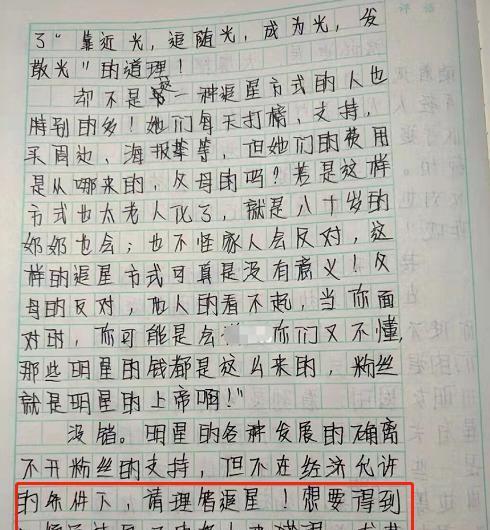 了“靠近光，追随光，成为光，发
散光”的道理！
却不是另一种追星方式的人也
特别的多！她们每天打榜，支持，
买周边，海报等等，但她们的费用
是从哪来的，父母的吗？若是这样
方式也太老人化了，就是八十岁的
奶奶也会；也不怪家人会反对，这
样的追星方式可真是没有意义！父
母的反对，他人的看不起，当你面
对时，你可能是会 你们又不懂，
那些明星的钱都是这么来的，粉丝
就是明星的上帝啊！”
没错。明星的各种发展的确离
不开粉丝的支持，但不在经济允许
的条件下，请理智追星！想要得到